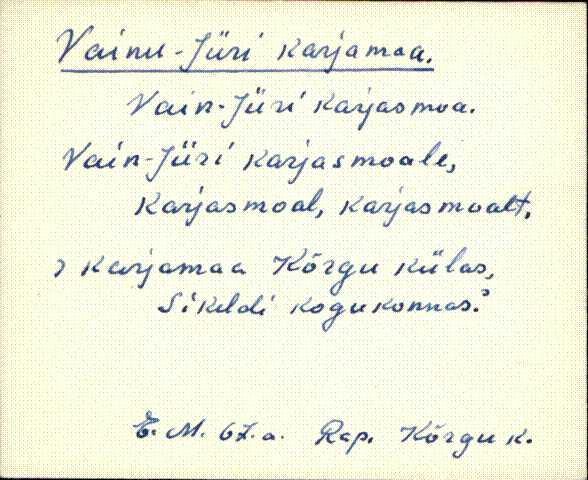 Vainu-Jüri karjamaa.
Vain-Jüri karjasmoa.
Vain-Jüri karjasmoale,
karjasmoal, karjasmoalt,
karjamaa Kõrgu külas,
Sikeldi kogukonnas.
E. M. 67.a. Rap. Kõrgu k.